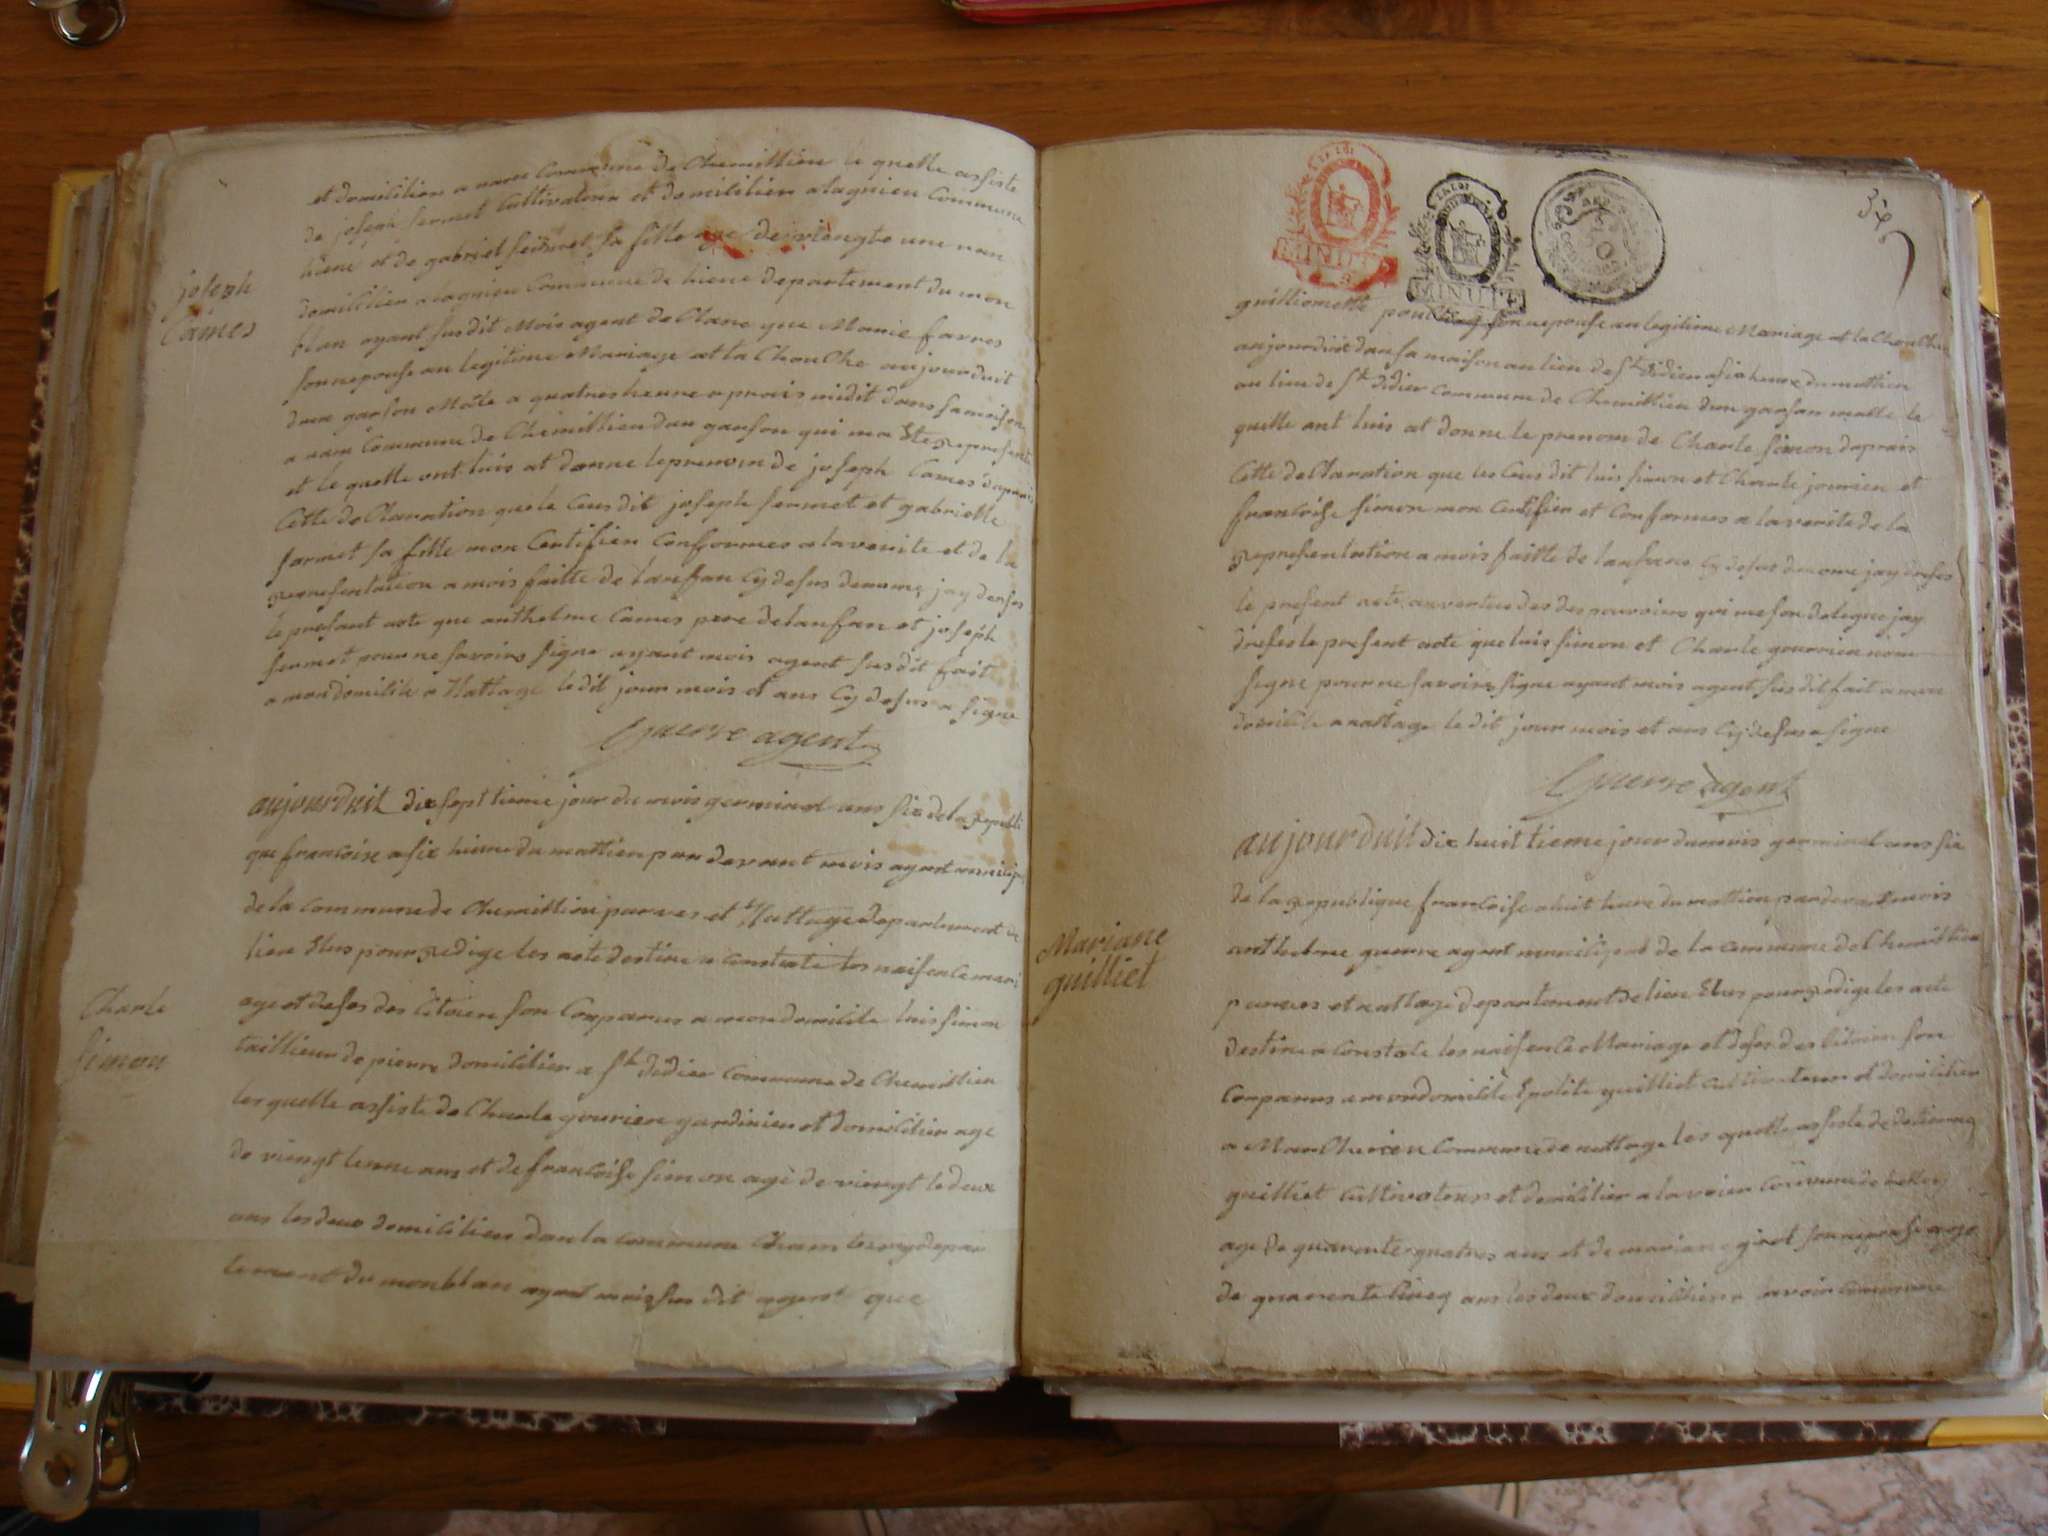 et domicilier a nant Commune de Chemillieu le quelle assiste
de joseph fermet Cultivateur et domicilier a lagnieu Commune
hiene et de gabriel fermet sa fille age de viengte une nan
domicilier a lagnieu Commune de hiene departement du mon
blan ayant sus dit Mois agent declare que Marie favres
son nepouse an legitime Mariage at la Chou Che aujourduit
dun garson Mâle a quatres heure aprais midit dans sa maison
a nant Commune de Chemillieu dun garson qui ma Ste represente
et le quelle ont luis at donne leprenom de joseph Cames daprais
Cette de Claration que le Ceus dit joseph fermet et gabrielle
farmet sa fille mon Certifier Conformes a laverite et de la
representation a mois faitte de lanfan Cy desus denome jay denses
le presant acte que anthelme Cames pere de lanfan et joseph
fermet pour ne savoire signe ayant mois agent sus dit fait
a mon domicile a Nattage le dit jour mois et ans Cy desus a signe
joseph
Cames
Guerre agent
aujourduit dix sept tieme jour du mois germinal ans six de la republi
que francoise a six hieure du mattien par devant mois agent municipal
de la Commune de Chemillieu parves et Nattage departement de
lien Elus pour redige les acte destine a Constate les naisence mari
age et deses des Citoien son Conparus a mon domicile luis simon
taillieur de pierre domicilier a St didier Commune de Chemillieu
les quelle assiste de Charle gourien gardinier et domicilier age
de viengt lenne ans et de francoise simon age de viengt te deux
ans les deux domicilier dan la Commune Cham beroy depar
tement du monblan ayant mois sus dit agent que
Charle
simon
guilliomette son nepouse an legitime Mariage at la Chou Che
aujourduit dans sa maison au lien de St didier a six heure du mattien
au lieu de St didier Commune de Chemillieu dun garson malle le
quelle ont luis at donne le prenom de Charle simon daprais
Cette de Claration que les Ceus dit luis simon et Charle jourien et
francoise simon mon Certifier et Conformes a la verite de la
representation a mois faitte de lanfans Cy desus denome jay dreses
le present acte auvertue des des pouvoire qui me son delegue jay
dreses le present acte que luis simon et Charle gourrien non
signe pour ne savoire signe ayant mois agent sus dit fait a mon
domicile a nattage le dit jour mois et ans Cy desus a signe
Guerre agent
aujourduit dix huit tieme jour du mois germinal ans six
de la republique francoise a huit heure du mattien par devant mois
anthelme guerre agent municipal de la Commune de Chemillieu
parves et nattage departement de lien Elus pour redige les acte
destine a Constate les naisence Mariage et deses des Citoien son
Conparus a mon domicile Epolite guilliet Cultivateur et domicilier
a Commune de nattage les quelle assiste de
guilliet Cultivateur et domicilier a la voier Commune de belley
age de quarente quatres ans et de mariane girel son nepouse age
de quarente Cineq ans les deux domicilier a avoir Commune
Mariane
guilliet
LA LOI
MINUTE
LA LOI
MINUTE